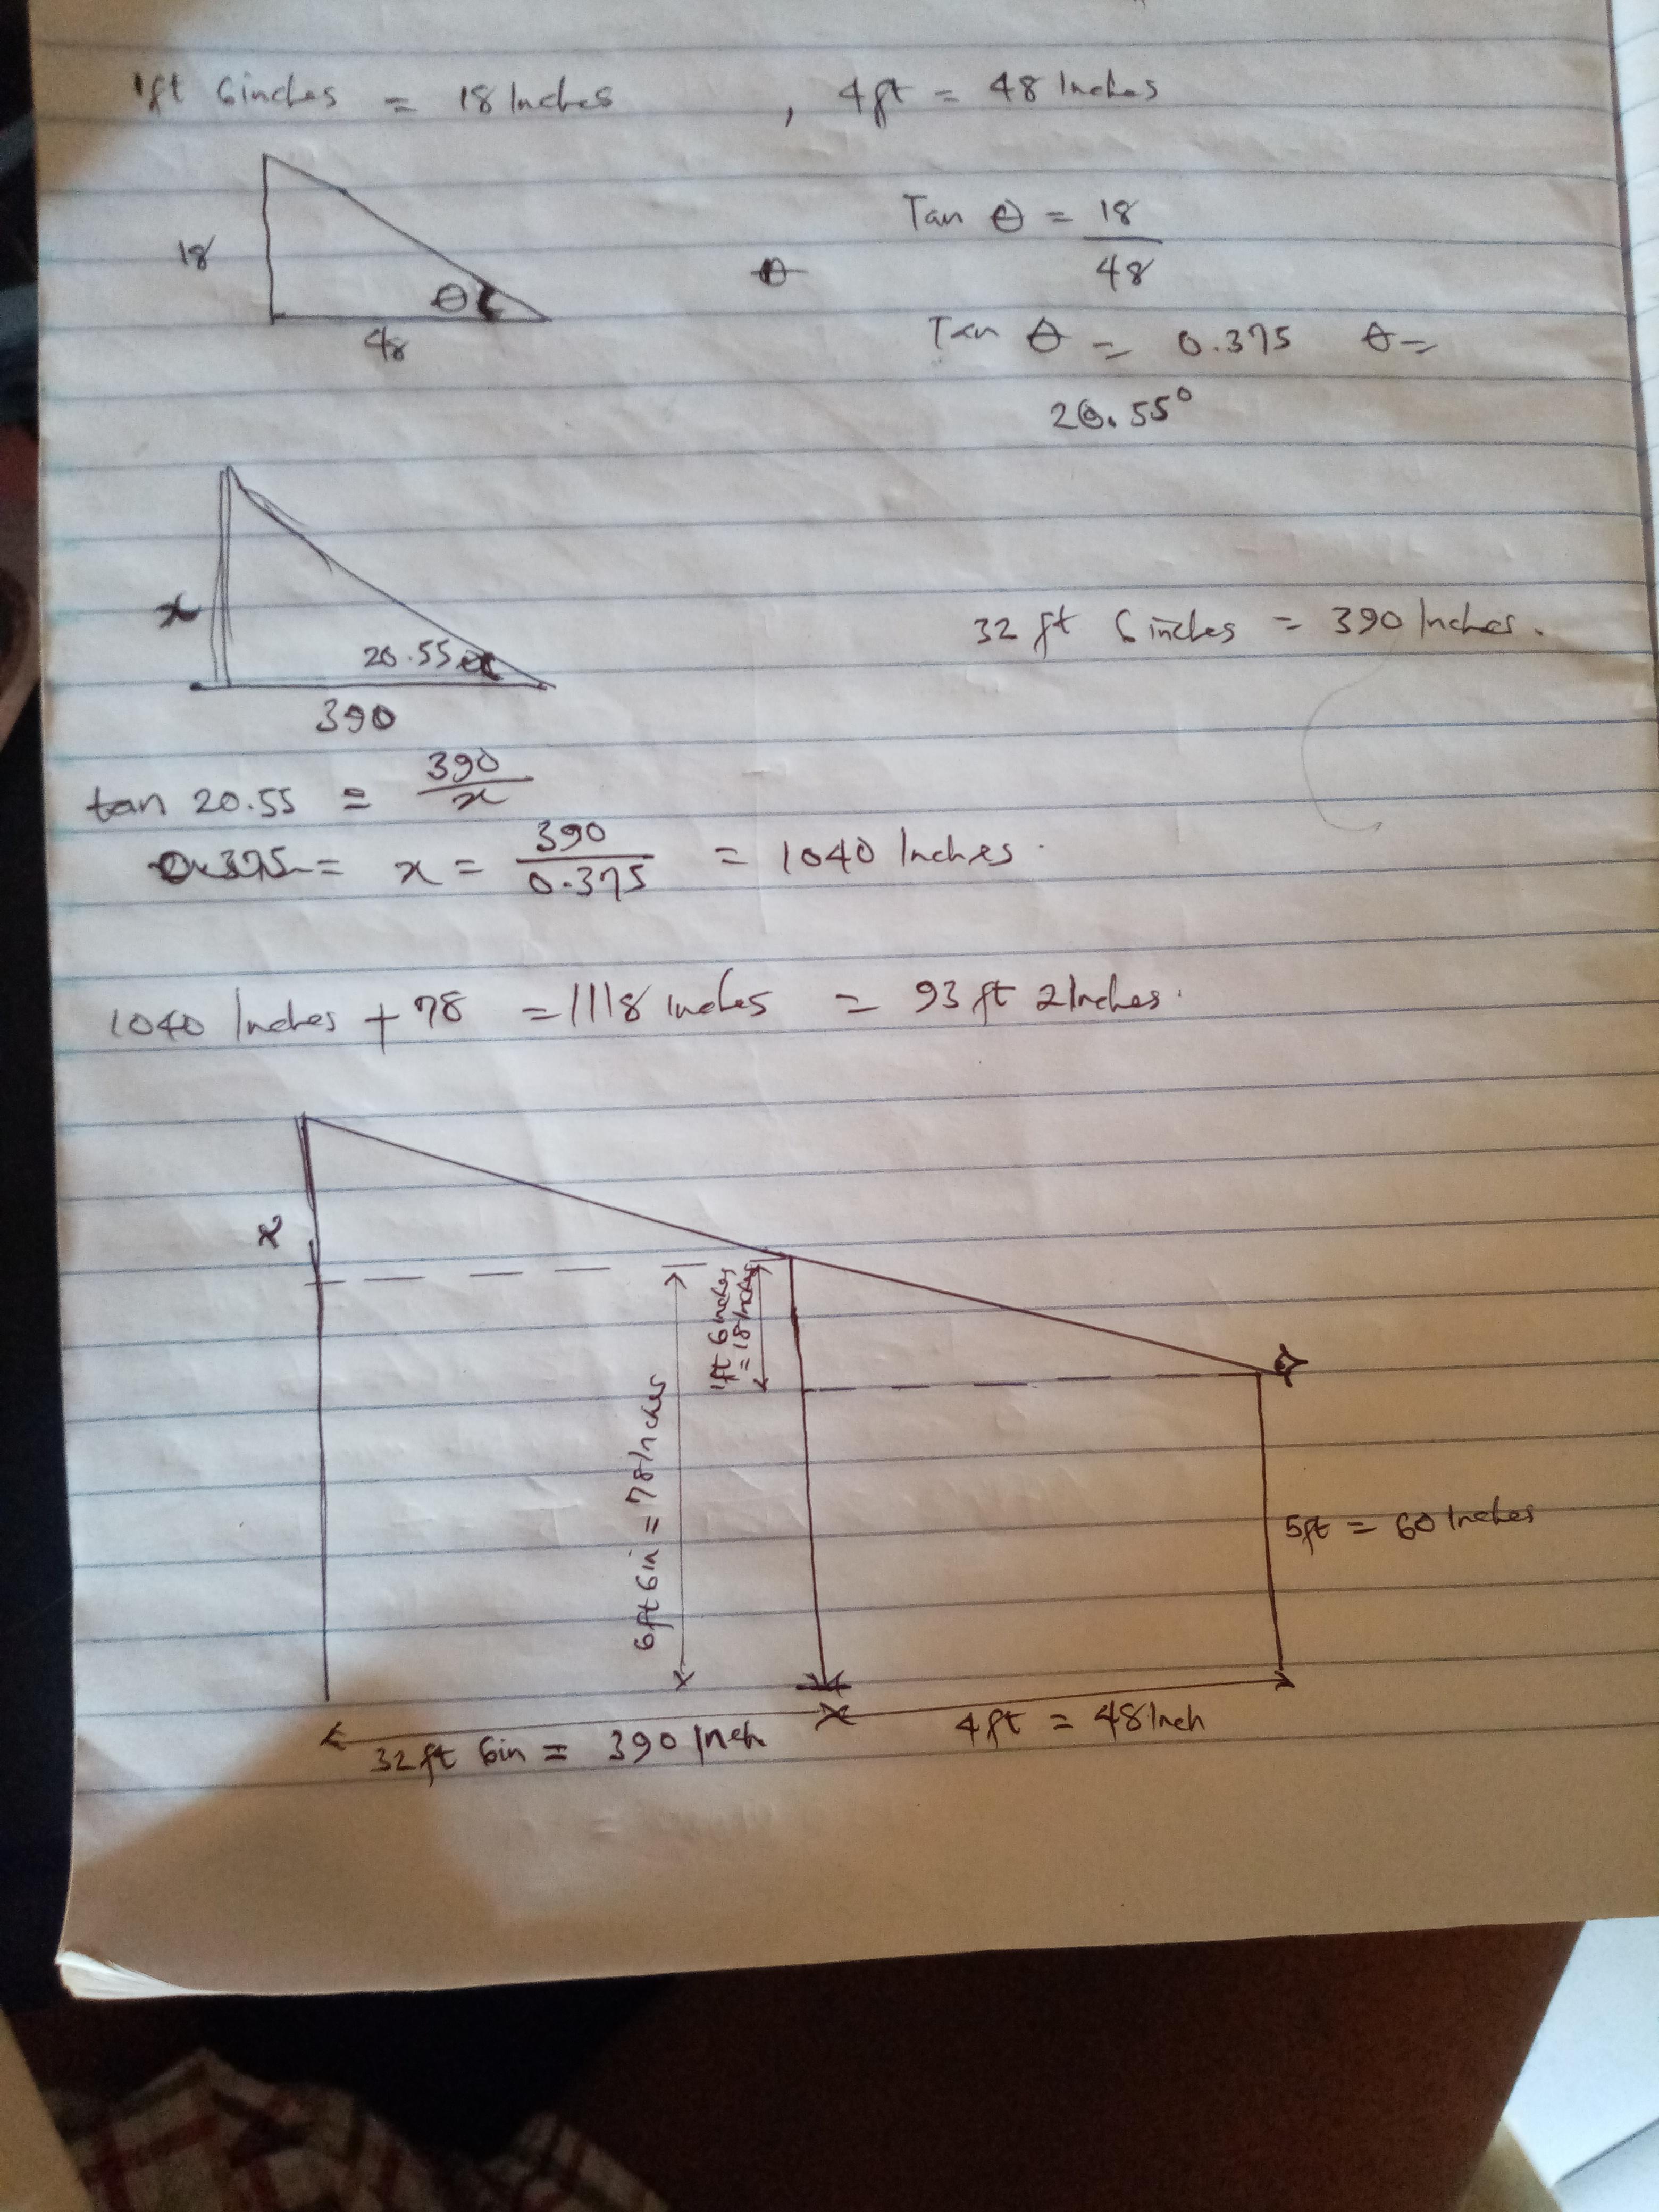 1ft 6inches = 18 Inches , 4ft = 48 Inches
Tan θ = 18
18 θ 48
θ
48
Tan θ = 0.375 θ =
20.55°
x
32 ft 6 inches = 390 Inches.
20.55
390
tan 20.55 = 390
x
0.375 = x = 390 = 1040 Inches.
0.375
1040 Inches + 78 = 1118 inches = 93 ft 2 Inches.
x
1ft 6 inches
= 18 Inches
6ft 6in = 78 Inches
5ft = 60 Inches
32ft 6in = 390 Inch
4ft = 48 Inch